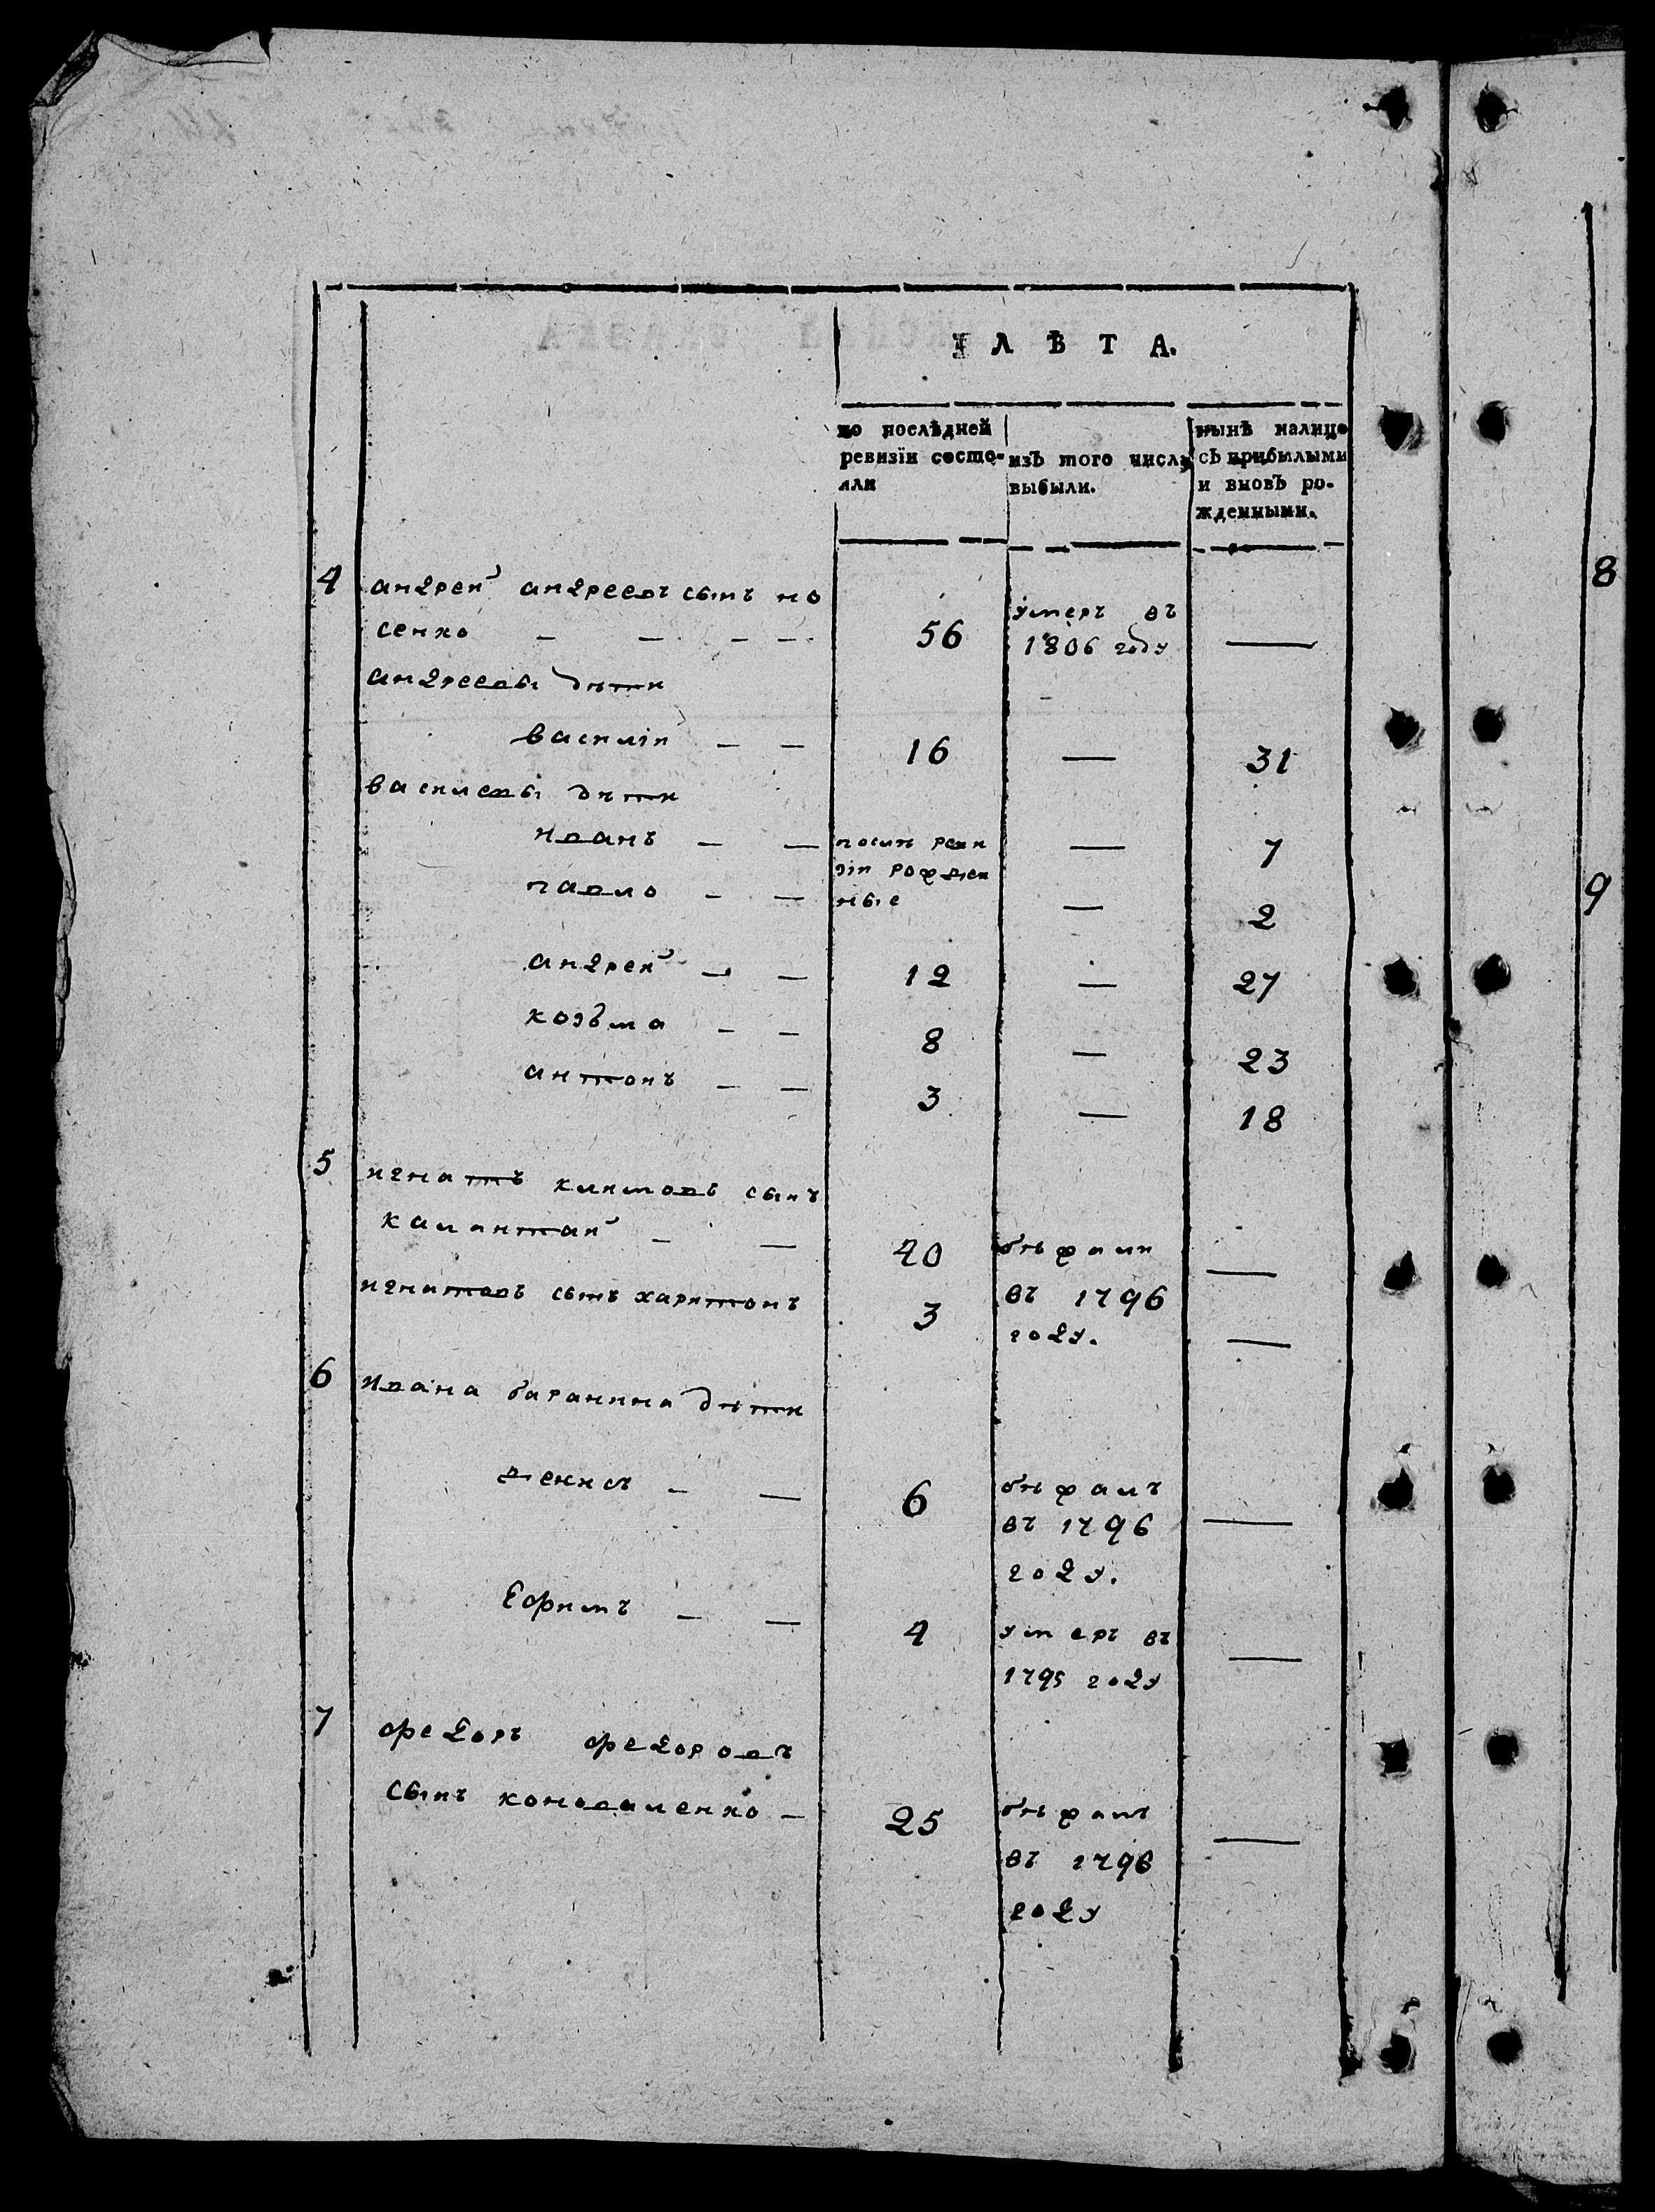 ЛѢТА.
по послѣдней
ревизіи состо-
яли
изъ того числа
выбыли.
нынѣ налицо
съ прибылыми
и вновь ро-
жденными.
4 андрей андреевъ сынъ но
сенко — — — — 56 умеръ въ 1806 году —
андреевы дѣти
василій — — 16 — 31
василевы дѣти
иванъ — — послѣ реви — 7
зіи рожден
павло — — ные — 2
андрей — — 12 — 27
козьма — — 8 — 23
антонъ — — 3 — 18
5 игнатъ климовъ сынъ
калантай — — 40 бѣжали —
игнатовъ сынъ харитонъ 3 въ 1796 —
году.
6 ивана баранина дѣти
денисъ — — 6 бѣжалъ —
въ 1796
году.
Ефимъ — — 4 умеръ въ —
1795 году
7 федоръ федоровъ
сынъ коноваленко — 25 бѣжалъ —
въ 1796
году
8
9